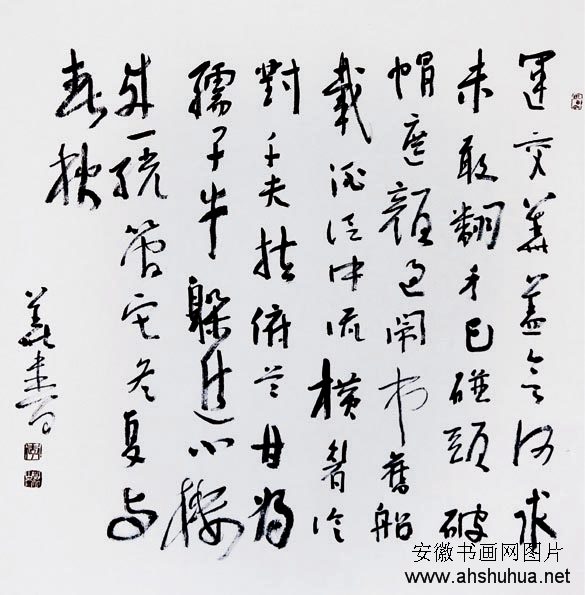 運交華蓋欲何求
未敢翻身已碰頭破
帽遮顏過鬧市舊船
載酒泛中流横眉冷
對千夫指俯首甘為
孺子牛躲進小樓
成一統管它冬夏与
春秋
安徽书画网图片
www.ahshuhua.net